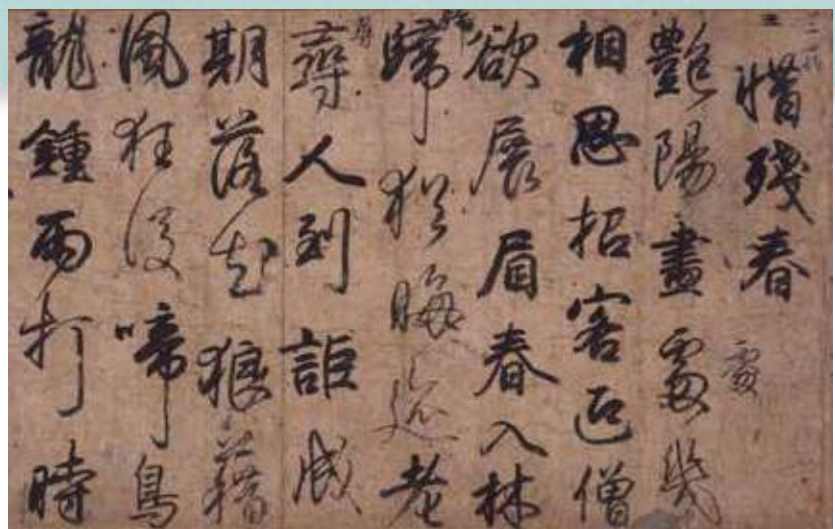 惜殘春
處
艷陽盡處幾
相思招客迎僧
欲展眉春入林
歸猶晦迹老
尋人到詎成
期落花狼藉
風狂後啼鳥
龍鍾雨打時